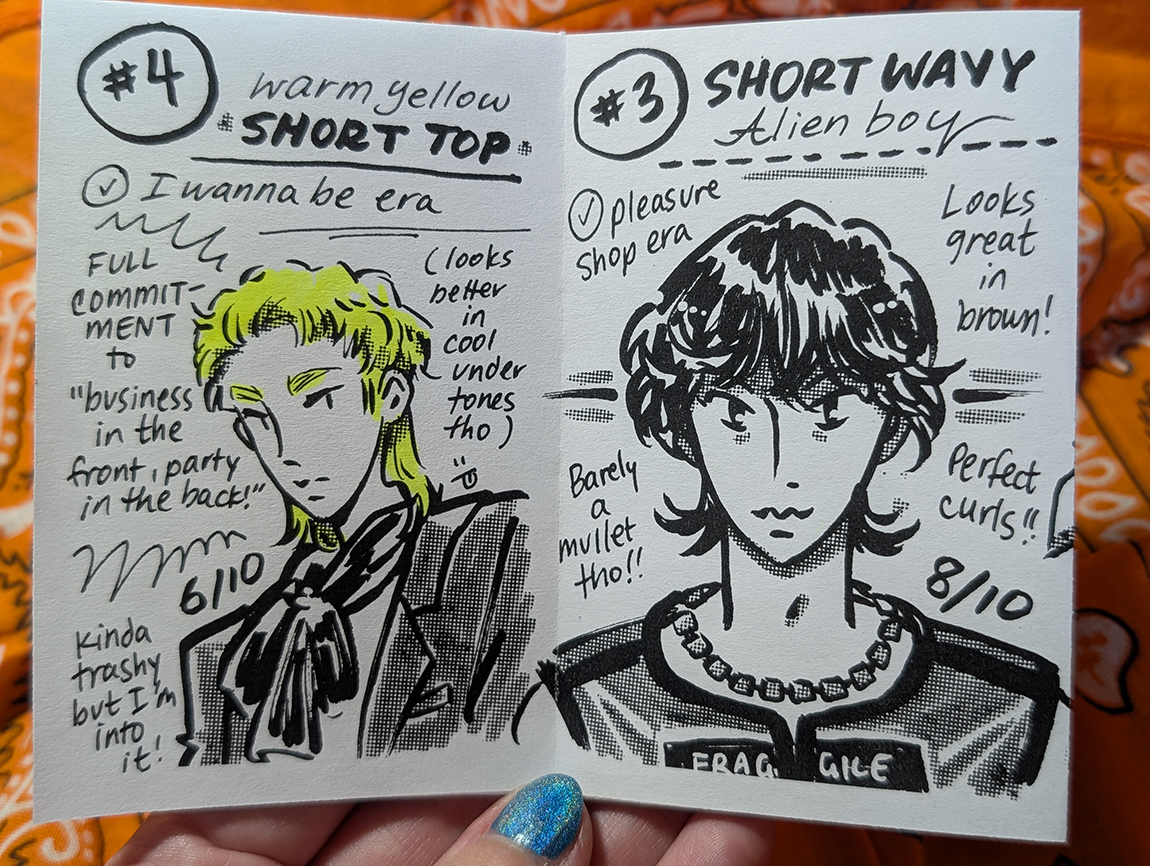 #4
warm yellow
SHORT TOP
I wanna be era
FULL
COMMIT-
MENT
to
"business
in the
front, party
in the back!"
6/10
Kinda
trashy
but I'm
into
it!
(looks
better
in
cool
under
tones
tho)
#3
SHORT WAVY
Alien boy
pleasure
shop era
Looks
great
in
brown!
Barely
a
mullet
tho!!
Perfect
curls!!
8/10
FRAG GILE